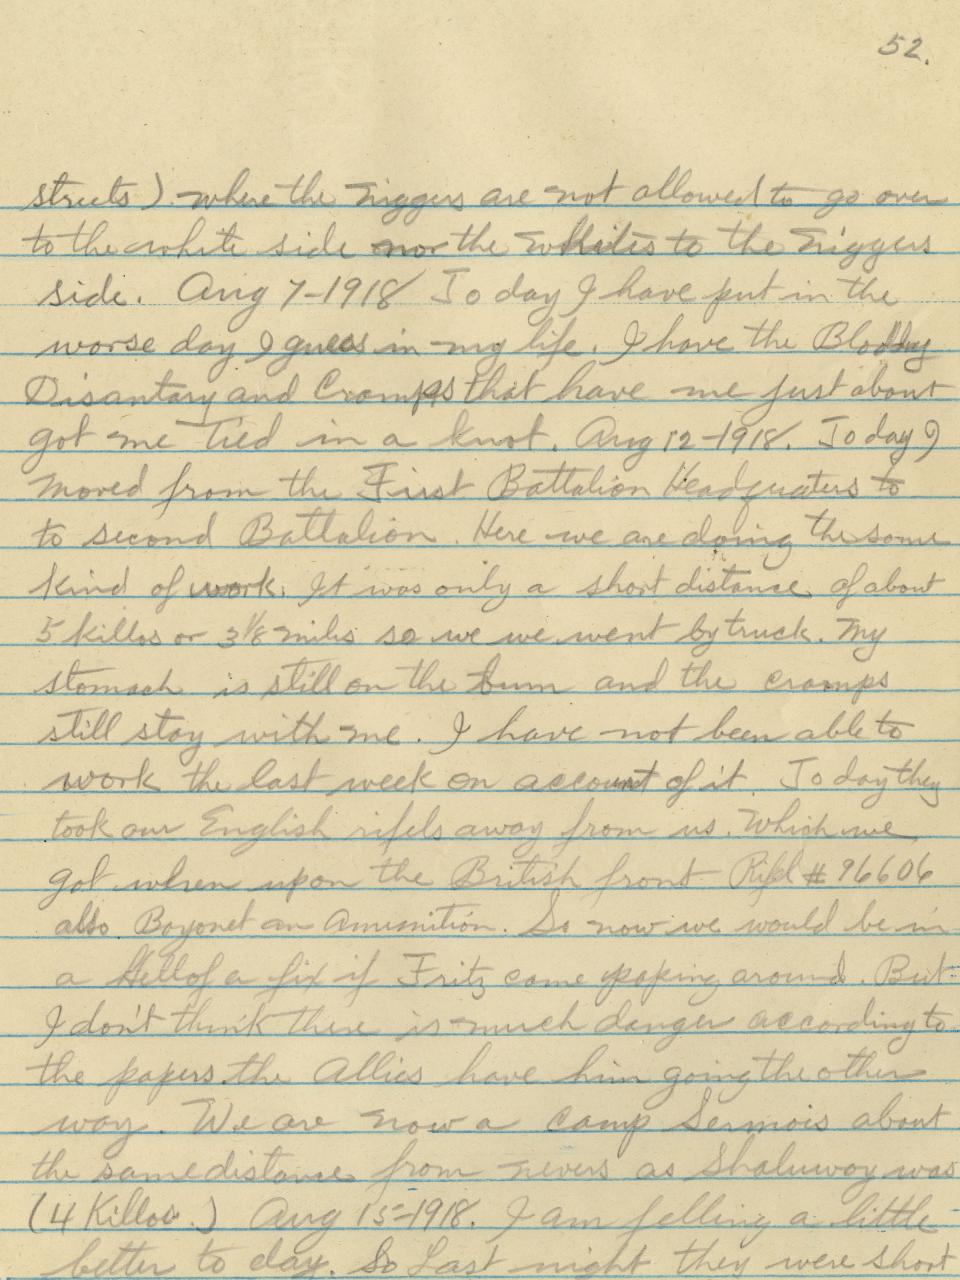 52.
streets). where the niggers are not allowed to go over
to the white side nor the whites to the niggers
side. Aug 7-1918 Today I have put in the
worse day I guess in my life. I have the Bloody
Disantary and Cramps that have me just about
got me tied in a knot. Aug 12-1918. Today I
moved from the First Battalion Headquaters to
to second Battalion. Here we are doing the same
kind of work. It was only a short distance of about
5 killos or 3 1/8 miles so we we went by truck. My
stomach is still on the bum and the cramps
still stay with me. I have not been able to
work the last week on account of it. Today they
took our English rifels away from us. Which we
got when upon the British front Rifel # 96606
also Bayonet an Amunition. So now we would be in
a Hell of a fix if Fritz come poking around. But
I don't think there is much danger according to
the papers. the Allies have him going the other
way. We are now a camp Sermois about
the same distance from nevers as Shaluway was
(4 Killos.) Aug 15-1918. I am felling a little
better to day. So Last night they were short